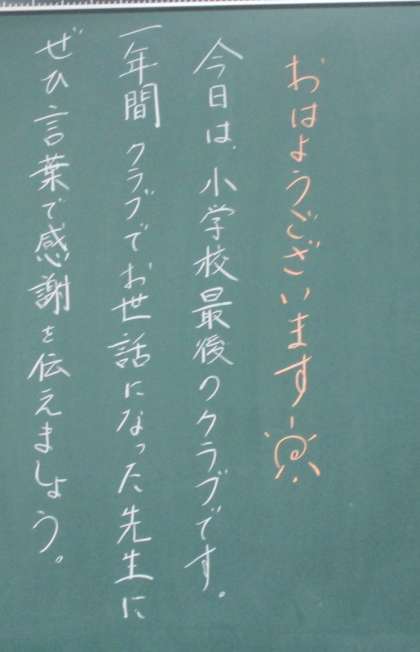 おはようございます
今日は、小学校最後のクラブです。
一年間クラブでお世話になった先生に
ぜひ言葉で感謝を伝えましょう。